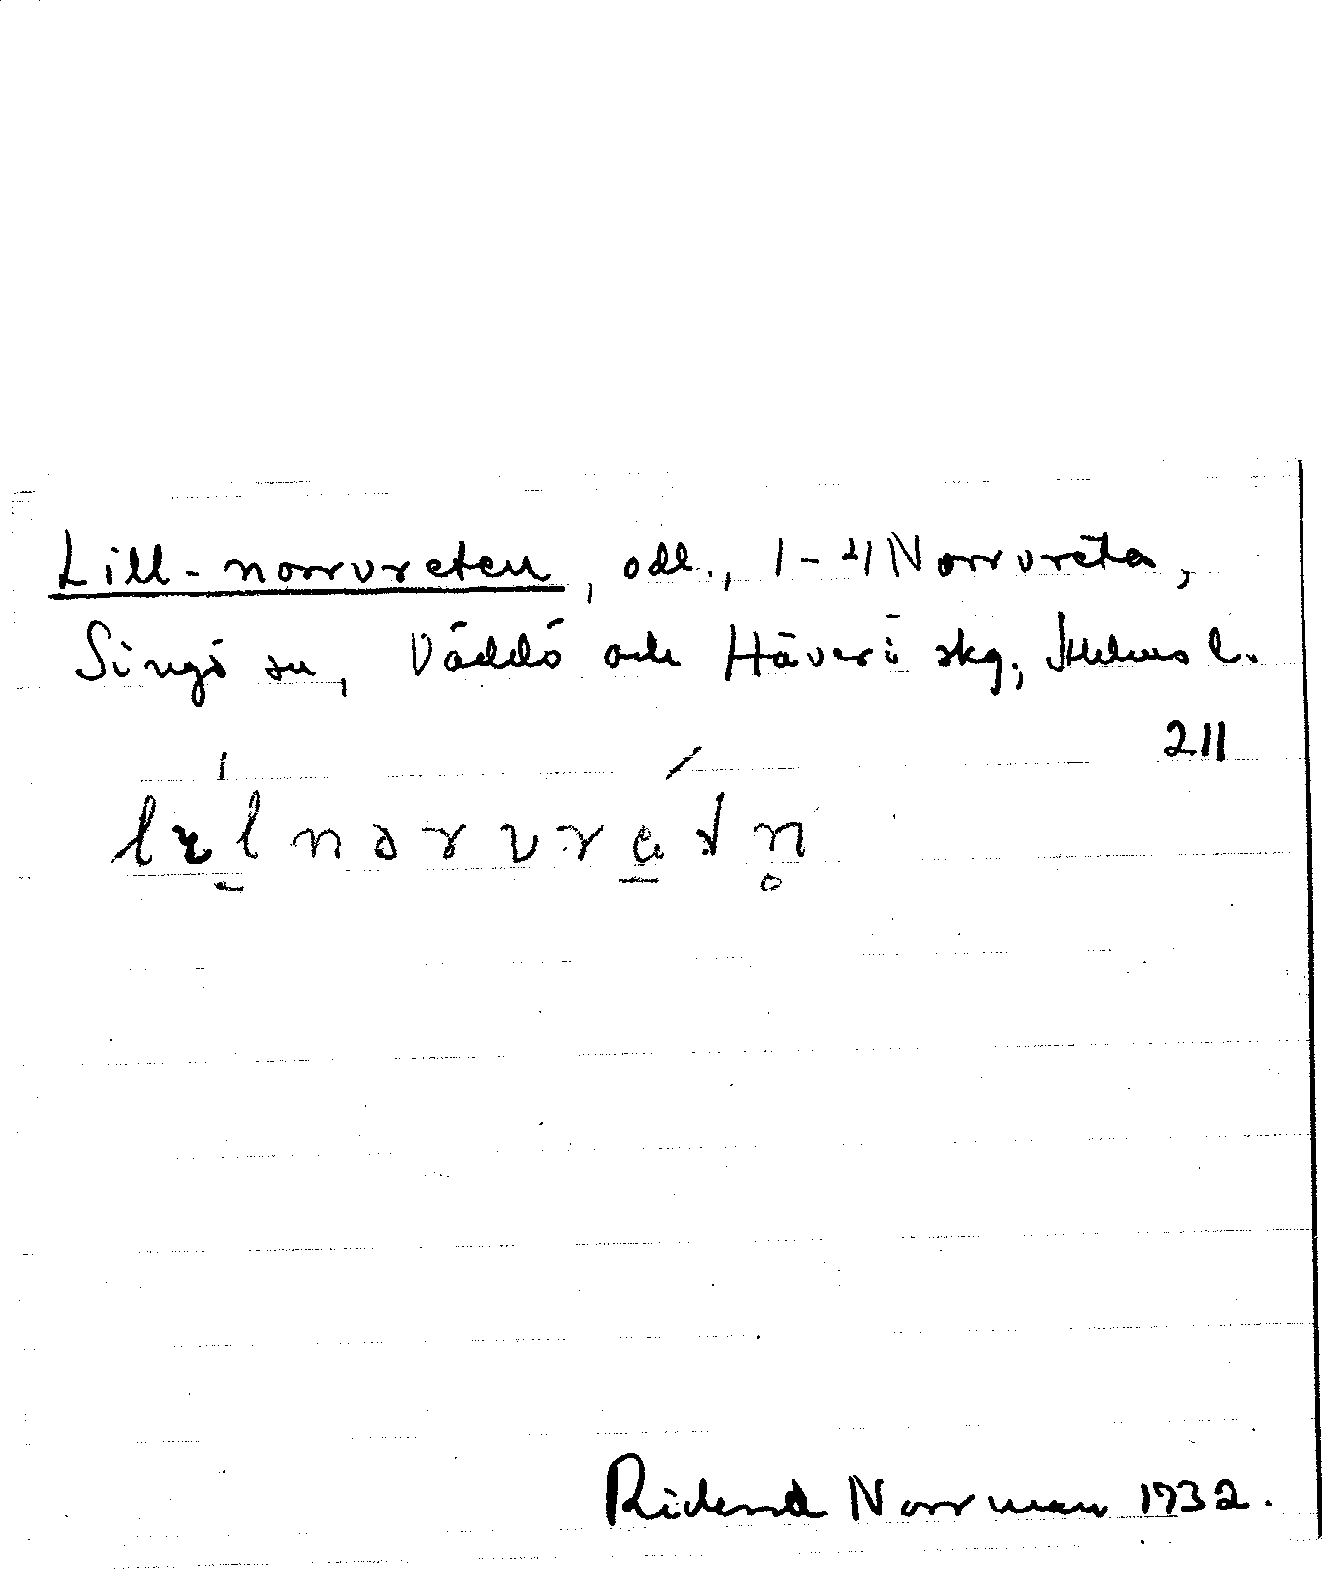 Lill-norrvreten, odl., 1-4 Norrvreta,
Singö sn, Väddö och Häverö skg, Sthlms l.
211
lɪlnorvretn̥
Rickard Norrman 1932.